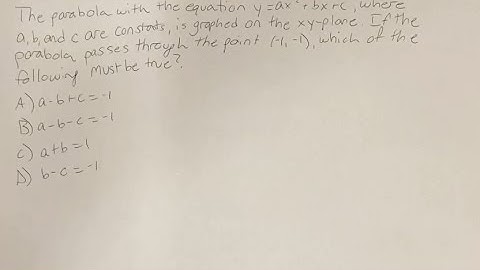 The parabola with the equation y=ax²+bx+c, where
a,b, and c are constants, is graphed on the xy-plane. If the
parabola passes through the point (-1,-1), which of the
following must be true?
A) a-b+c=-1
B) a-b-c=-1
C) a+b=1
D) b-c=-1